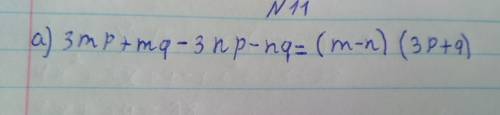 N11
a) 3mp+mq-3np-nq=(m-n) (3p+q)